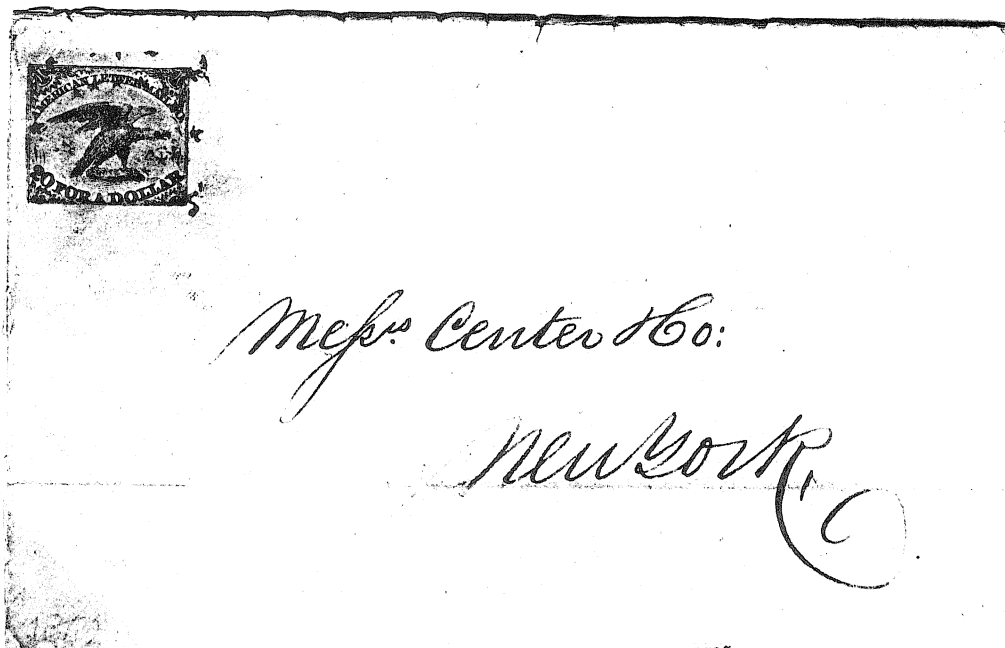 AMERICAN LETTER MAIL CO
20 FOR A DOLLAR
Messrs. Center & Co:
New York,